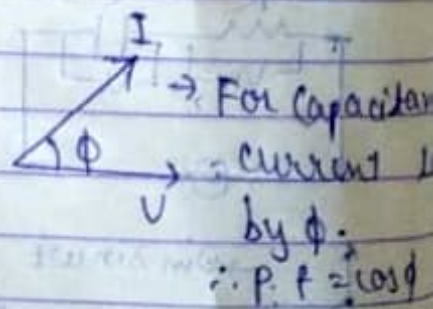 I
→ For Capacitan
φ : current L
V
by φ.
∴ P.f = cosφ